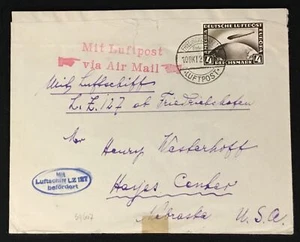 Mit Luftpost
via Air Mail
DEUTSCHE LUFTPOST
4 4
REICHSMARK
LUFTPOST
Mit Luftschiff
L.Z. 127 ab Friedrichshafen
Mr Henry Westerhoff
Mit
Luftschiff LZ 127
befördert
Hayes Center
Nebraska U.S.A.